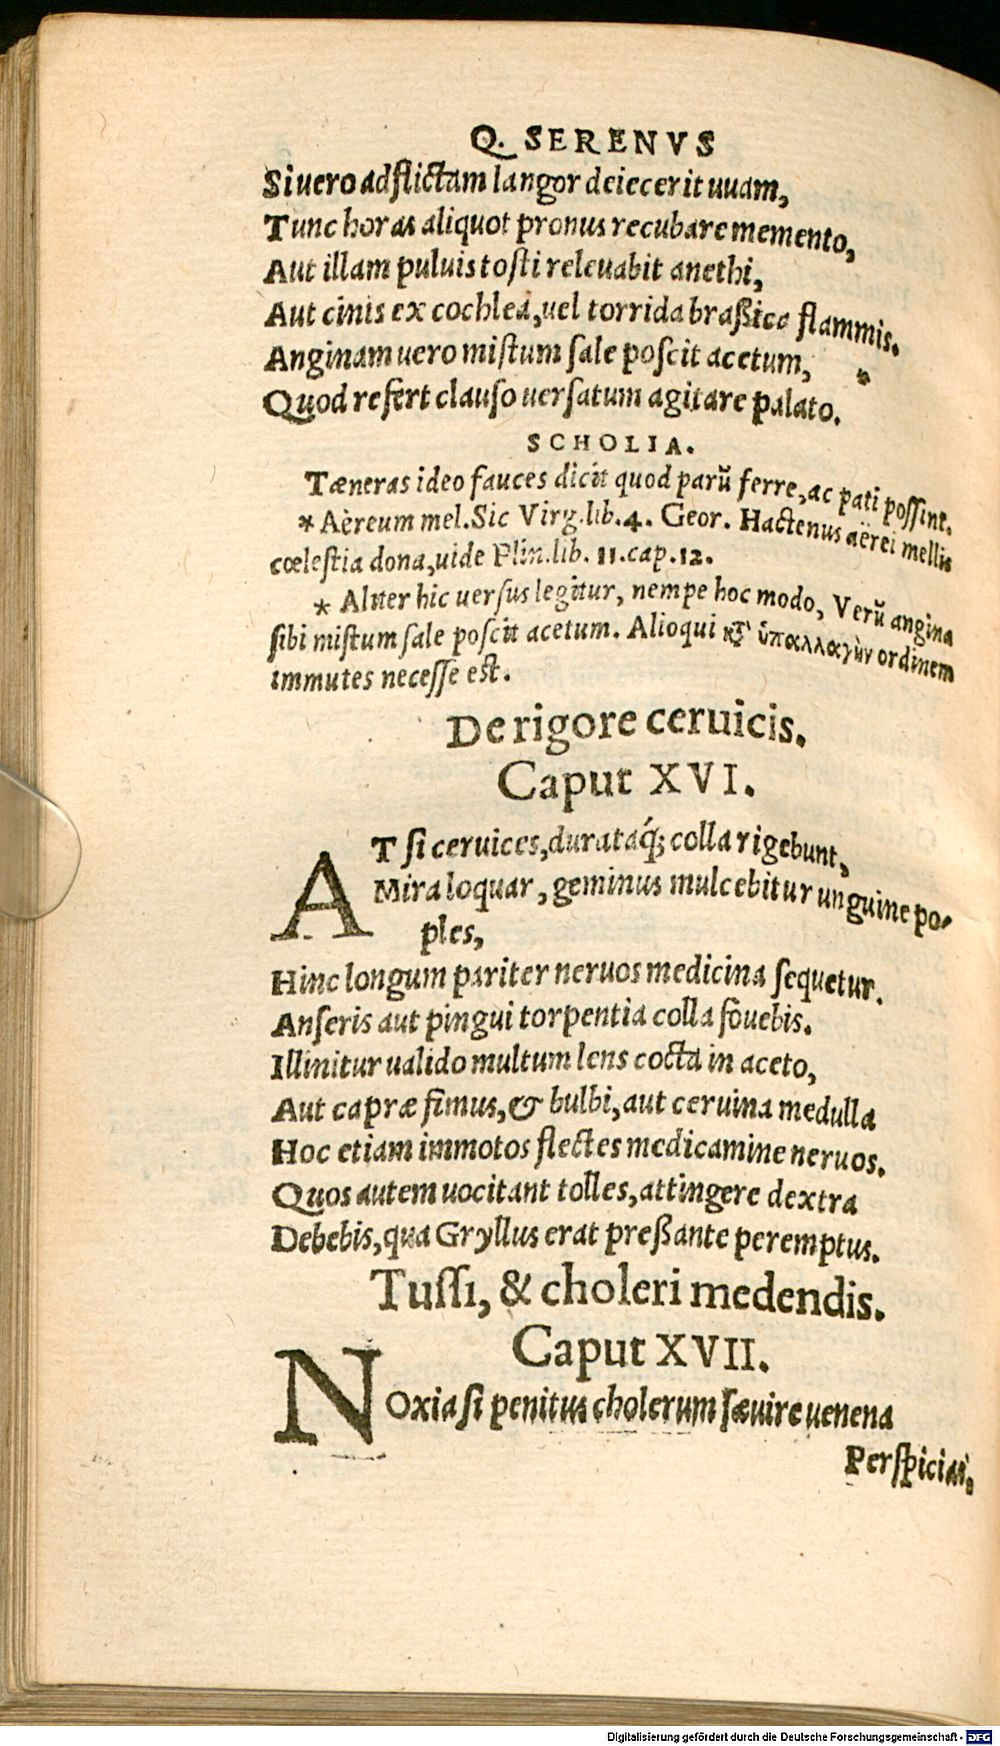 Q. SERENVS
Si uero adflictam langor deiecerit uuam,
Tunc horas aliquot pronus recubare memento,
Aut illam puluis tosti releuabit anethi,
Aut cinis ex cochlea, uel torrida braßica flammis.
Anginam uero mistum sale poscit acetum, *
Quod refert clauso uersatum agitare palato.
SCHOLIA.
Tæneras ideo fauces dicit quod parũ ferre, ac pati possint.
* Aëreum mel. Sic Virg. lib. 4. Geor. Hactenus aërei mellis
cœlestia dona, uide Plin. lib. 11. cap. 12.
* Aliter hic uersus legitur, nempe hoc modo, Verũ angina
sibi mistum sale poscit acetum. Alioqui κτ̓ ὑπαλλαγὴν ordinem
immutes necesse est.
De rigore ceruicis.
Caput XVI.
AT si ceruices, durataq́; colla rigebunt,
Mira loquar, geminus mulcebitur unguine po-
ples,
Hinc longum pariter neruos medicina sequetur.
Anseris aut pingui torpentia colla fouebis.
Illinitur ualido multum lens cocta in aceto,
Aut capræ fimus, & bulbi, aut ceruina medulla
Hoc etiam immotos flectes medicamine neruos.
Quos autem uocitant tolles, attingere dextra
Debebis, qua Gryllus erat preßante peremptus.
Tussi, & choleri medendis.
Caput XVII.
NOxia si penitus cholerum sæuire uenena
Perspicias,
Digitalisierung gefördert durch die Deutsche Forschungsgemeinschaft - DFG